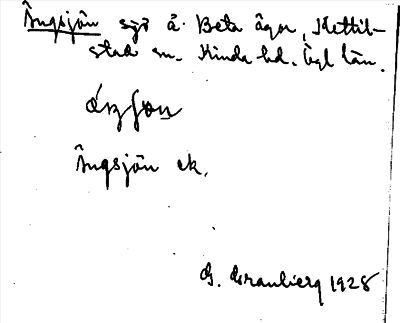 Ängsjön sjö å Beta ägor, Kettil-
stad sn. Kinda hd. Ögl län.
Ängsjön ek.
G. Franzberg 1928